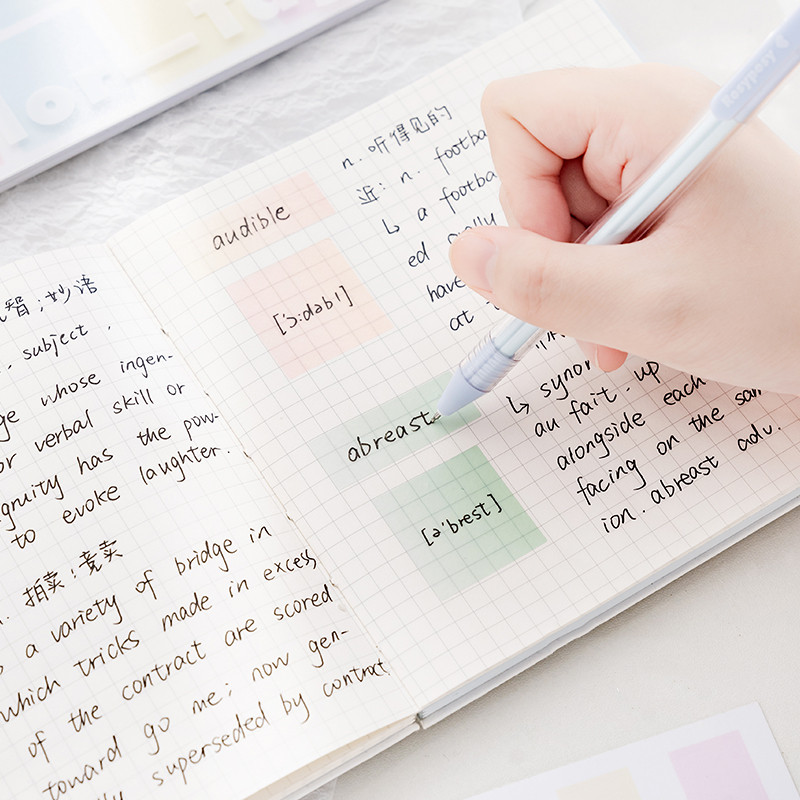 智;妙语
. subject ,
ge whose ingen-
or verbal skill or
gruity has the pow-
to evoke laughter.
拍卖;竞卖
a variety of bridge in
which tricks made in excess
of the contract are scored
toward go me; now gen-
lly superseded by contract
audible
['ɔ:dəbl]
n. 听得见的
近: n. footba
↳ a footba
ed
have
at
abreast
[ə'brest]
↳ synon
au fait. up
alongside each
facing on the sam
ion. abreast adv.
Rosyposy